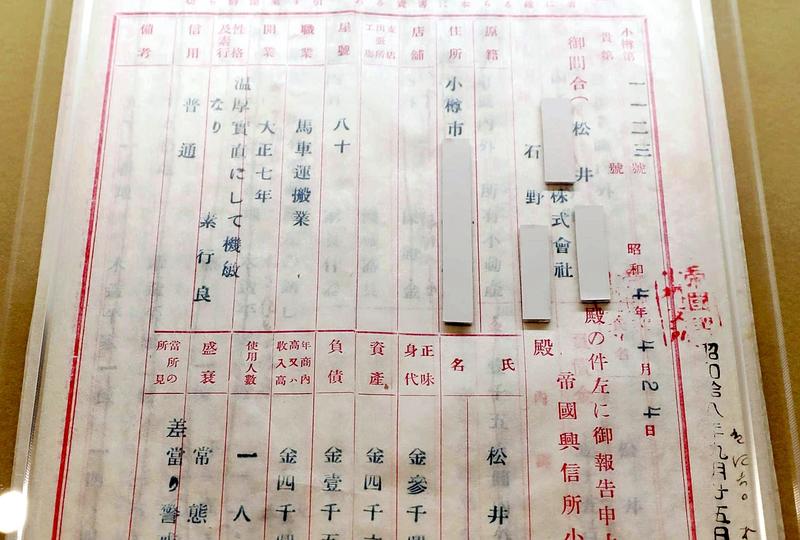 小樽第一一二三號
貴第 號
昭和 年4月24日
御問合(松井 株式會社 殿の件左に御報告申
石野 殿
帝國興信所小
原籍
住所 小樽市
店舗
支店出張所工場
屋號 八十
職業 馬車運搬業
開業 大正七年
性格及素行 温厚實直にして機敏なり 素行良
信用 普通
備考
氏名 松井
正味身代 金參千
資産 金四千
負債 金壹千五
年商内高又ハ收入高 金四千
使用人數 一人
盛衰 常態
當所の所見 差當り警
昭和拾八年九月十五日